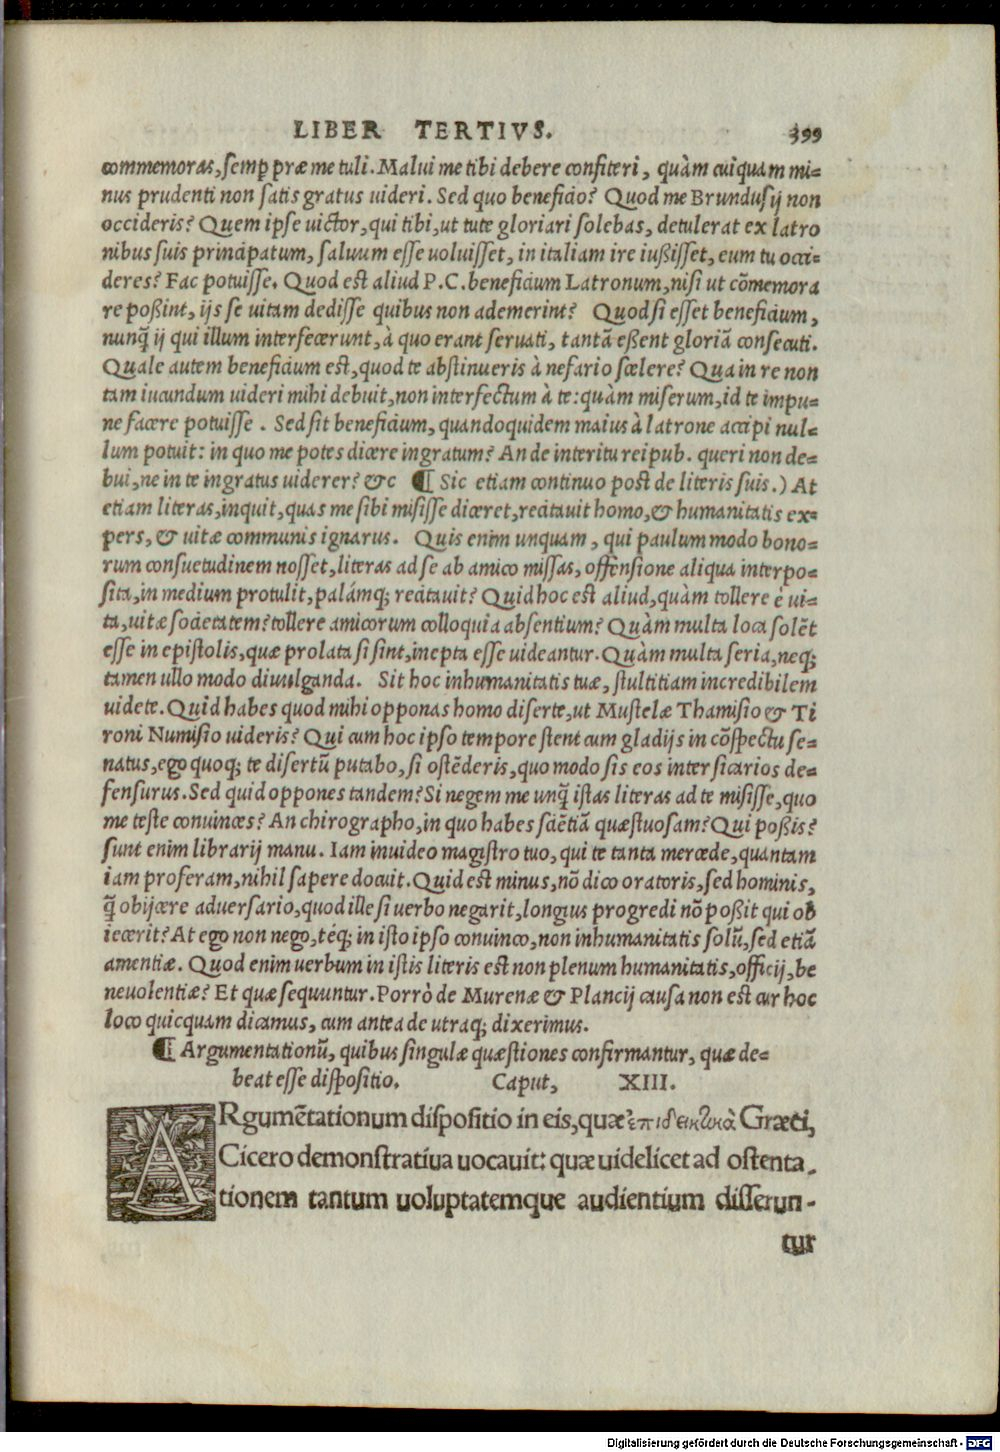 LIBER TERTIVS. 399
commemoras, semꝑ præ me tuli. Malui me tibi debere confiteri, quàm cuiquam mi=
nus prudenti non satis gratus uideri. Sed quo beneficio? Quod me Brundusij non
occideris? Quem ipse uictor, qui tibi, ut tute gloriari solebas, detulerat ex latro
nibus suis principatum, saluum esse uoluisset, in italiam ire iußisset, eum tu occi=
deres? Fac potuisse. Quod est aliud P.C. beneficium Latronum, nisi ut cõmemora
re poßint, ijs se uitam dedisse quibus non ademerint? Quod si esset beneficium,
nunq̃ ij qui illum interfecerunt, à quo erant seruati, tantã eßent gloriã consecuti.
Quale autem beneficium est, quod te abstinueris à nefario scelere? Qua in re non
tam iucundum uideri mihi debuit, non interfectum à te: quàm miserum, id te impu=
ne facere potuisse. Sed sit beneficium, quandoquidem maius à latrone accipi nul=
lum potuit: in quo me potes dicere ingratum? An de interitu reipub. queri non de=
bui, ne in te ingratus uiderer? &c ¶ Sic etiam continuo post de literis suis.) At
etiam literas, inquit, quas me sibi misisse diceret, recitauit homo, & humanitatis ex=
pers, & uitæ communis ignarus. Quis enim unquam, qui paulum modo bono=
rum consuetudinem nosset, literas ad se ab amico missas, offensione aliqua interpo=
sita, in medium protulit, palámq; recitauit? Quid hoc est aliud, quàm tollere è ui=
ta, uitæ societatem? tollere amicorum colloquia absentium? Quàm multa loca solẽt
esse in epistolis, quæ prolata si sint, inepta esse uideantur. Quàm multa seria, neq;
tamen ullo modo diuulganda. Sit hoc inhumanitatis tuæ, stultitiam incredibilem
uidete. Quid habes quod mihi opponas homo diserte, ut Mustelæ Thamisio & Ti
roni Numisio uideris? Qui cum hoc ipso tempore stent cum gladijs in cõspectu se=
natus, ego quoq; te disertũ putabo, si ostẽderis, quo modo sis eos inter sicarios de=
fensurus. Sed quid oppones tandem? Si negem me unq̃ istas literas ad te misisse, quo
me teste conuinces? An chirographo, in quo habes sciẽtiã quæstuosam? Qui poßis?
sunt enim librarij manu. Iam inuideo magistro tuo, qui te tanta mercede, quantam
iam proferam, nihil sapere docuit. Quid est minus, nõ dico oratoris, sed hominis,
q̃ obijcere aduersario, quod ille si uerbo negarit, longius progredi nõ poßit qui ob
iecerit? At ego non nego, téq; in isto ipso conuinco, non inhumanitatis solũ, sed etiã
amentiæ. Quod enim uerbum in istis literis est non plenum humanitatis, officij, be
neuolentiæ? Et quæ sequuntur. Porrò de Murenæ & Plancij causa non est cur hoc
loco quicquam dicamus, cum antea de utraq; dixerimus.
¶ Argumentationũ, quibus singulæ quæstiones confirmantur, quæ de=
beat esse dispositio. Caput, XIII.
ARgumẽtationum dispositio in eis, quæ ἐπιδεικτικὰ Græci,
Cicero demonstratiua uocauit: quæ uidelicet ad ostenta-
tionem tantum uoluptatemque audientium disserun-
tur
Digitalisierung gefördert durch die Deutsche Forschungsgemeinschaft - DFG